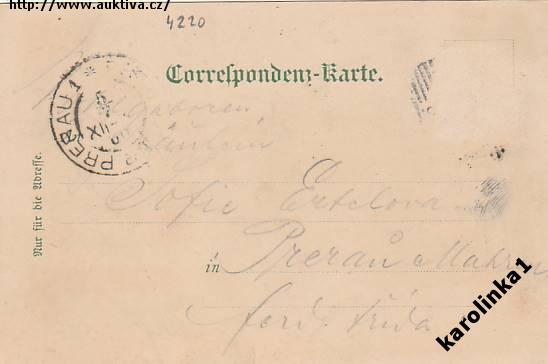 http://www.auktiva.cz/
4220
Correspondenz-Karte.
PRERAU 1 *
XII
Nur für die Adresse.
Fräulein
Sofie Ertelova
in Prerau a Mähren
karolinka1